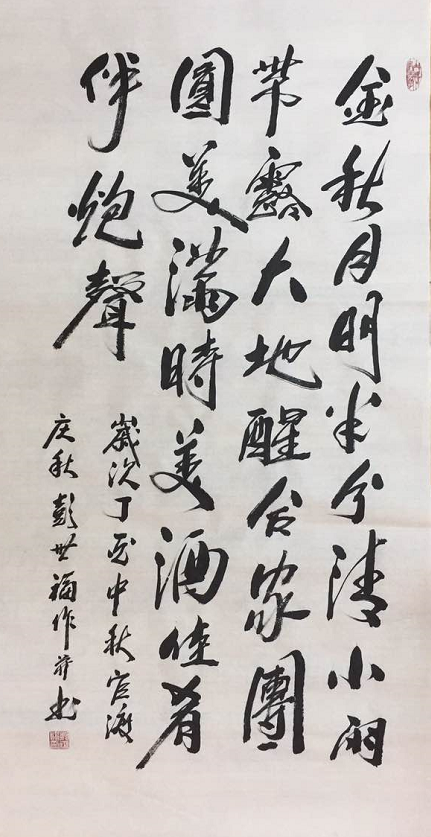 金秋月明半分清小雨
带露大地醒合家團
圆美滿時美酒佳肴
伴炮聲
歲次丁酉中秋官渡
庆秋彭世福作并书